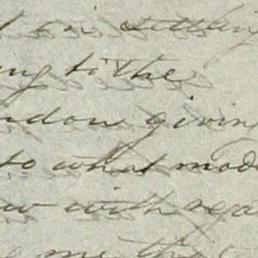 in settling
ing to the
ndon giving
to what mod
w with rega
me the